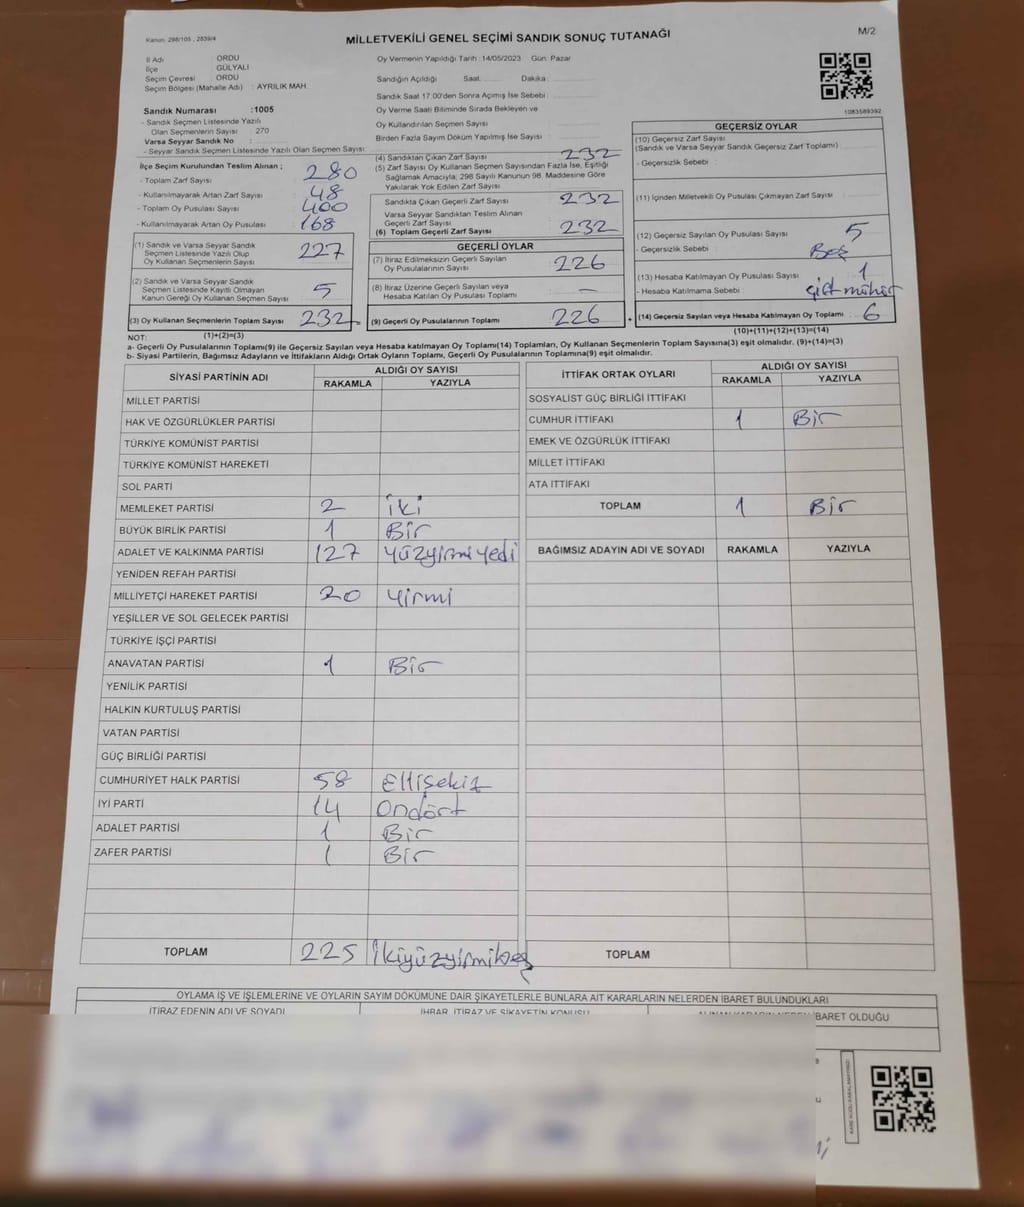 Kanun: 298/105 , 2839/4
MİLLETVEKİLİ GENEL SEÇİMİ SANDIK SONUÇ TUTANAĞI
M/2
İl Adı ORDU
İlçe GÜLYALI
Seçim Çevresi ORDU
Seçim Bölgesi (Mahalle Adı) : AYRILIK MAH.
Sandık Numarası :1005
- Sandık Seçmen Listesinde Yazılı
Olan Seçmenlerin Sayısı : 270
Varsa Seyyar Sandık No
- Seyyar Sandık Seçmen Listesinde Yazılı Olan Seçmen Sayısı
Oy Vermenin Yapıldığı Tarih :14/05/2023 Gün: Pazar
Sandığın Açıldığı Saat: Dakika:
Sandık Saat 17.00'den Sonra Açılmış İse Sebebi :
Oy Verme Saati Bitiminde Sırada Bekleyen ve
Oy Kullandırılan Seçmen Sayısı
Birden Fazla Sayım Döküm Yapılmış İse Sayısı
1083589392
İlçe Seçim Kurulundan Teslim Alınan ;
- Toplam Zarf Sayısı 280
- Kullanılmayarak Artan Zarf Sayısı 48
- Toplam Oy Pusulası Sayısı 400
- Kullanılmayarak Artan Oy Pusulası 168
(1) Sandık ve Varsa Seyyar Sandık
Seçmen Listesinde Yazılı Olup
Oy Kullanan Seçmenlerin Sayısı 227
(2) Sandık ve Varsa Seyyar Sandık
Seçmen Listesinde Kayıtlı Olmayan
Kanun Gereği Oy Kullanan Seçmen Sayısı 5
(3) Oy Kullanan Seçmenlerin Toplam Sayısı 232
(4) Sandıktan Çıkan Zarf Sayısı 232
(5) Zarf Sayısı Oy Kullanan Seçmen Sayısından Fazla İse, Eşitliği
Sağlamak Amacıyla; 298 Sayılı Kanunun 98. Maddesine Göre
Yakılarak Yok Edilen Zarf Sayısı
Sandıkta Çıkan Geçerli Zarf Sayısı 232
Varsa Seyyar Sandıktan Teslim Alınan
Geçerli Zarf Sayısı
(6) Toplam Geçerli Zarf Sayısı 232
GEÇERLİ OYLAR
(7) İtiraz Edilmeksizin Geçerli Sayılan
Oy Pusulalarının Sayısı 226
(8) İtiraz Üzerine Geçerli Sayılan veya
Hesaba Katılan Oy Pusulası Toplamı —
(9) Geçerli Oy Pusulalarının Toplamı 226
GEÇERSİZ OYLAR
(10) Geçersiz Zarf Sayısı
(Sandık ve Varsa Seyyar Sandık Geçersiz Zarf Toplamı)
- Geçersizlik Sebebi :
(11) İçinden Milletvekili Oy Pusulası Çıkmayan Zarf Sayısı
(12) Geçersiz Sayılan Oy Pusulası Sayısı 5
- Geçersizlik Sebebi : Beş
(13) Hesaba Katılmayan Oy Pusulası Sayısı 1
- Hesaba Katılmama Sebebi : Çift mühür
+ (14) Geçersiz Sayılan veya Hesaba Katılmayan Oy Toplamı : 6
NOT: (1)+(2)=(3)
(10)+(11)+(12)+(13)=(14)
a- Geçerli Oy Pusulalarının Toplamı(9) ile Geçersiz Sayılan veya Hesaba katılmayan Oy Toplamı(14) Toplamları, Oy Kullanan Seçmenlerin Toplam Sayısına(3) eşit olmalıdır. (9)+(14)=(3)
b- Siyasi Partilerin, Bağımsız Adayların ve İttifakların Aldığı Ortak Oyların Toplamı, Geçerli Oy Pusulalarının Toplamına(9) eşit olmalıdır.
SİYASİ PARTİNİN ADI
ALDIĞI OY SAYISI
RAKAMLA YAZIYLA
MİLLET PARTİSİ
HAK VE ÖZGÜRLÜKLER PARTİSİ
TÜRKİYE KOMÜNİST PARTİSİ
TÜRKİYE KOMÜNİST HAREKETİ
SOL PARTİ
MEMLEKET PARTİSİ 2 iki
BÜYÜK BİRLİK PARTİSİ 1 Bir
ADALET VE KALKINMA PARTİSİ 127 yüzyirmiyedi
YENİDEN REFAH PARTİSİ
MİLLİYETÇİ HAREKET PARTİSİ 20 yirmi
YEŞİLLER VE SOL GELECEK PARTİSİ
TÜRKİYE İŞÇİ PARTİSİ
ANAVATAN PARTİSİ 1 Bir
YENİLİK PARTİSİ
HALKIN KURTULUŞ PARTİSİ
VATAN PARTİSİ
GÜÇ BİRLİĞİ PARTİSİ
CUMHURİYET HALK PARTİSİ 58 Ellisekiz
İYİ PARTİ 14 Ondört
ADALET PARTİSİ 1 Bir
ZAFER PARTİSİ 1 Bir
TOPLAM 225 İkiyüzyirmibeş
İTTİFAK ORTAK OYLARI
ALDIĞI OY SAYISI
RAKAMLA YAZIYLA
SOSYALİST GÜÇ BİRLİĞİ İTTİFAKI
CUMHUR İTTİFAKI 1 Bir
EMEK VE ÖZGÜRLÜK İTTİFAKI
MİLLET İTTİFAKI
ATA İTTİFAKI
TOPLAM 1 Bir
BAĞIMSIZ ADAYIN ADI VE SOYADI RAKAMLA YAZIYLA
TOPLAM
OYLAMA İŞ VE İŞLEMLERİNE VE OYLARIN SAYIM DÖKÜMÜNE DAİR ŞİKAYETLERLE BUNLARA AİT KARARLARIN NELERDEN İBARET BULUNDUKLARI
İTİRAZ EDENİN ADI VE SOYADI İHBAR, İTİRAZ VE ŞİKAYETİN KONUSU ALINAN KARARIN NEDEN İBARET OLDUĞU